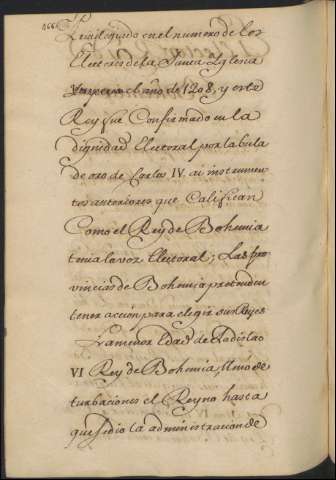 privilegiado en el numero de los
Electores de la Santa Yglesia
Ymperio el año de 1208, y este
Rey fue Confirmado en la
dignidad Electoral por la bula
de oro de Carlos IV. ai instrumen
tos anteriores que Califican
Como el Rey de Bohemia
tenia la voz Electoral; Las pro
vincias de Bohemia pretenden
tener acción para elegir sus Reyes
La menor Edad de Ladislao
VI Rey de Bohemia, llenó de
turbaciones el Reyno hasta
que se dio la administracion de